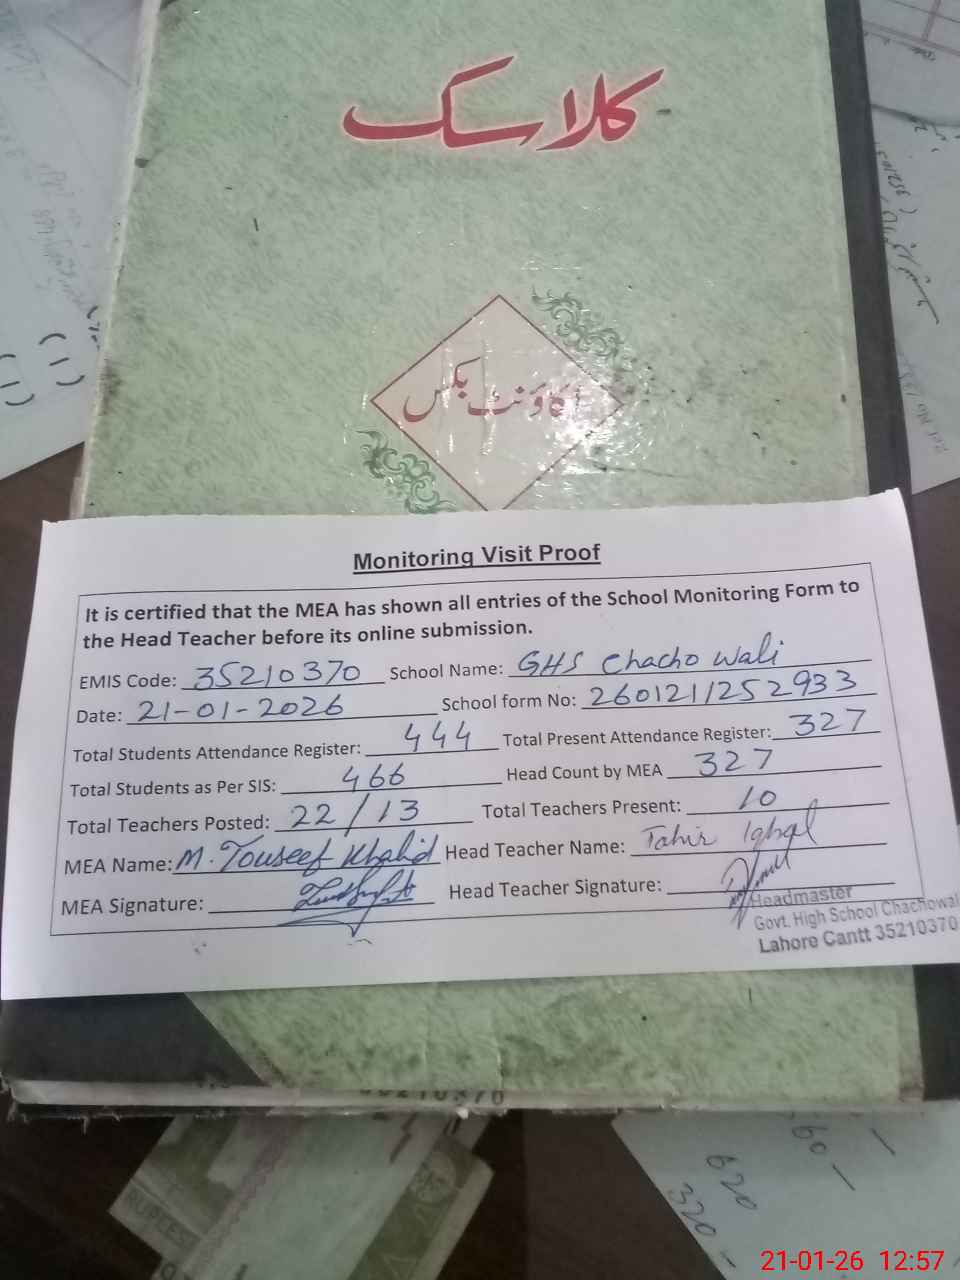 کلاسک
اکاؤنٹ بکس
Monitoring Visit Proof
It is certified that the MEA has shown all entries of the School Monitoring Form to
the Head Teacher before its online submission.
EMIS Code: 35210370 School Name: GHS Chacho Wali
Date: 21-01-2026 School form No: 2601211252933
Total Students Attendance Register: 444 Total Present Attendance Register: 327
Total Students as Per SIS: 466 Head Count by MEA 327
Total Teachers Posted: 22/13 Total Teachers Present: 10
MEA Name: M. Touseef Khalid Head Teacher Name: Tahir Iqbal
MEA Signature: Head Teacher Signature:
Headmaster
Govt. High School Chachowali
Lahore Cantt 35210370
35210370
RUPEES
60-
620
320-
21-01-26 12:57